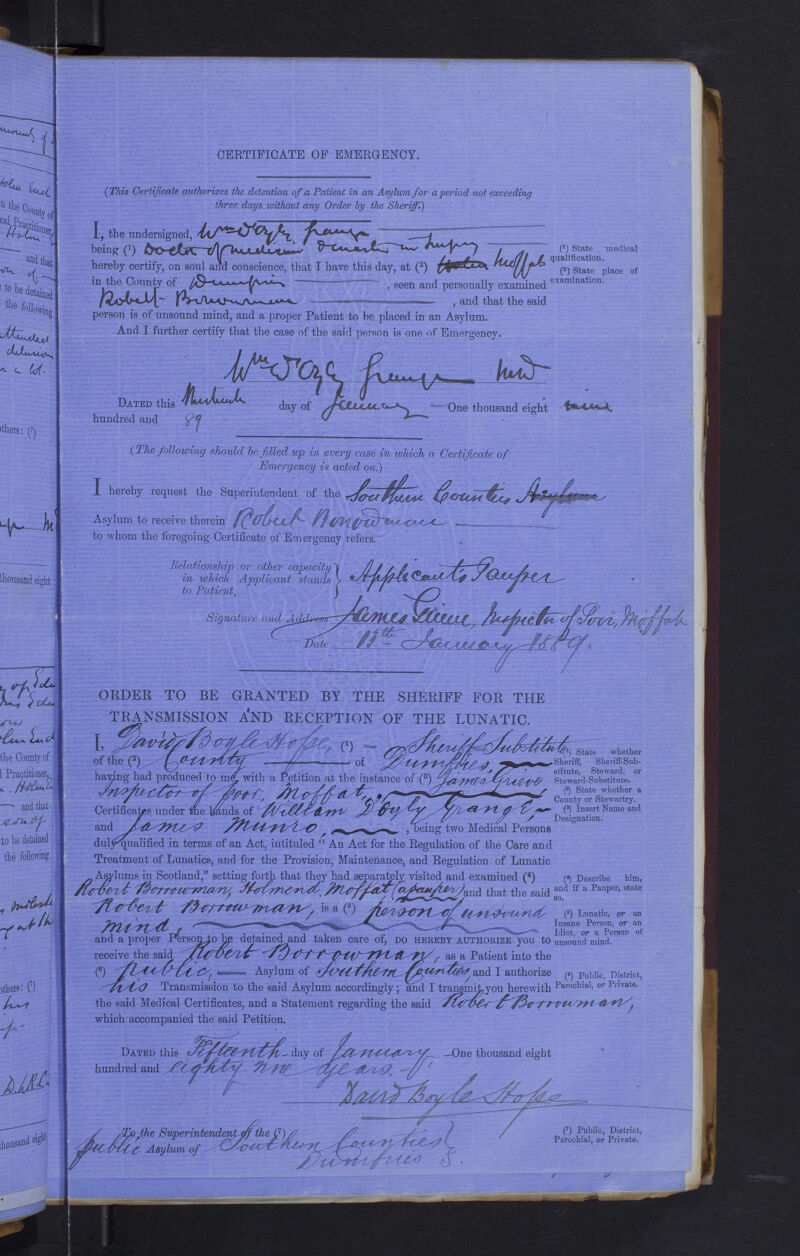 CERTIFICATE OF EMERGENCY.
(This Certificate authorizes the detention of a Patient in an Asylum for a period not exceeding
three days without any Order by the Sheriff.)
I, the undersigned, Wm D'Oyly Grange
being (1) Doctor of medicine & master in Surgery
hereby certify, on soul and conscience, that I have this day, at (2) Holm Moffat
in the County of Dumfries, seen and personally examined
Robert Borrowman, and that the said
person is of unsound mind, and a proper Patient to be placed in an Asylum.
And I further certify that the case of the said person is one of Emergency.
(1) State medical
qualification.
(2) State place of
examination.
Wm D'Oyly Grange MD
DATED this day of January One thousand eight nine
hundred and 89
(The following should be filled up in every case in which a Certificate of
Emergency is acted on.)
I hereby request the Superintendent of the Southern Counties Asylum
Asylum to receive therein Robert Borrowman
to whom the foregoing Certificate of Emergency refers.
Relationship or other capacity
in which Applicant stands
to Patient, Applicants Pauper
Signature and Address James Grieve, Inspector of Poor, Moffat
Date 15th January 1889.
ORDER TO BE GRANTED BY THE SHERIFF FOR THE
TRANSMISSION AND RECEPTION OF THE LUNATIC.
I, David Boyle Hope, (1) Sheriff Substitute
of the (2) County of Dumfries,
having had produced to me, with a Petition at the instance of (3) James Grieve
Inspector of Poor, Moffat,
Certificates under the hands of William D'Oyly Grange
and James Munro, being two Medical Persons
duly qualified in terms of an Act, intituled "An Act for the Regulation of the Care and
Treatment of Lunatics, and for the Provision, Maintenance, and Regulation of Lunatic
Asylums in Scotland," setting forth that they had separately visited and examined (4)
Robert Borrowman, Holmend, Moffat (a pauper) and that the said
Robert Borrowman, is a (5) person of unsound
mind
and a proper Person to be detained and taken care of, DO HEREBY AUTHORIZE you to
receive the said Robert Borrowman, as a Patient into the
(6) Public, Asylum of Southern Counties, and I authorize
his Transmission to the said Asylum accordingly; and I transmit you herewith
the said Medical Certificates, and a Statement regarding the said Robert Borrowman,
which accompanied the said Petition.
(1) State whether
Sheriff, Sheriff-Sub-
stitute, Steward, or
Steward-Substitute.
(2) State whether a
County or Stewartry.
(3) Insert Name and
Designation.
(4) Describe him,
and if a Pauper, state
so.
(5) Lunatic, or an
Insane Person, or an
Idiot, or a Person of
unsound mind.
(6) Public, District,
Parochial, or Private.
DATED this Fifteenth day of January, One thousand eight
hundred and eighty nine years.
David Boyle Hope
To the Superintendent of the (7)
Public Asylum of Southern Counties
Dumfries
(7) Public, District,
Parochial, or Private.